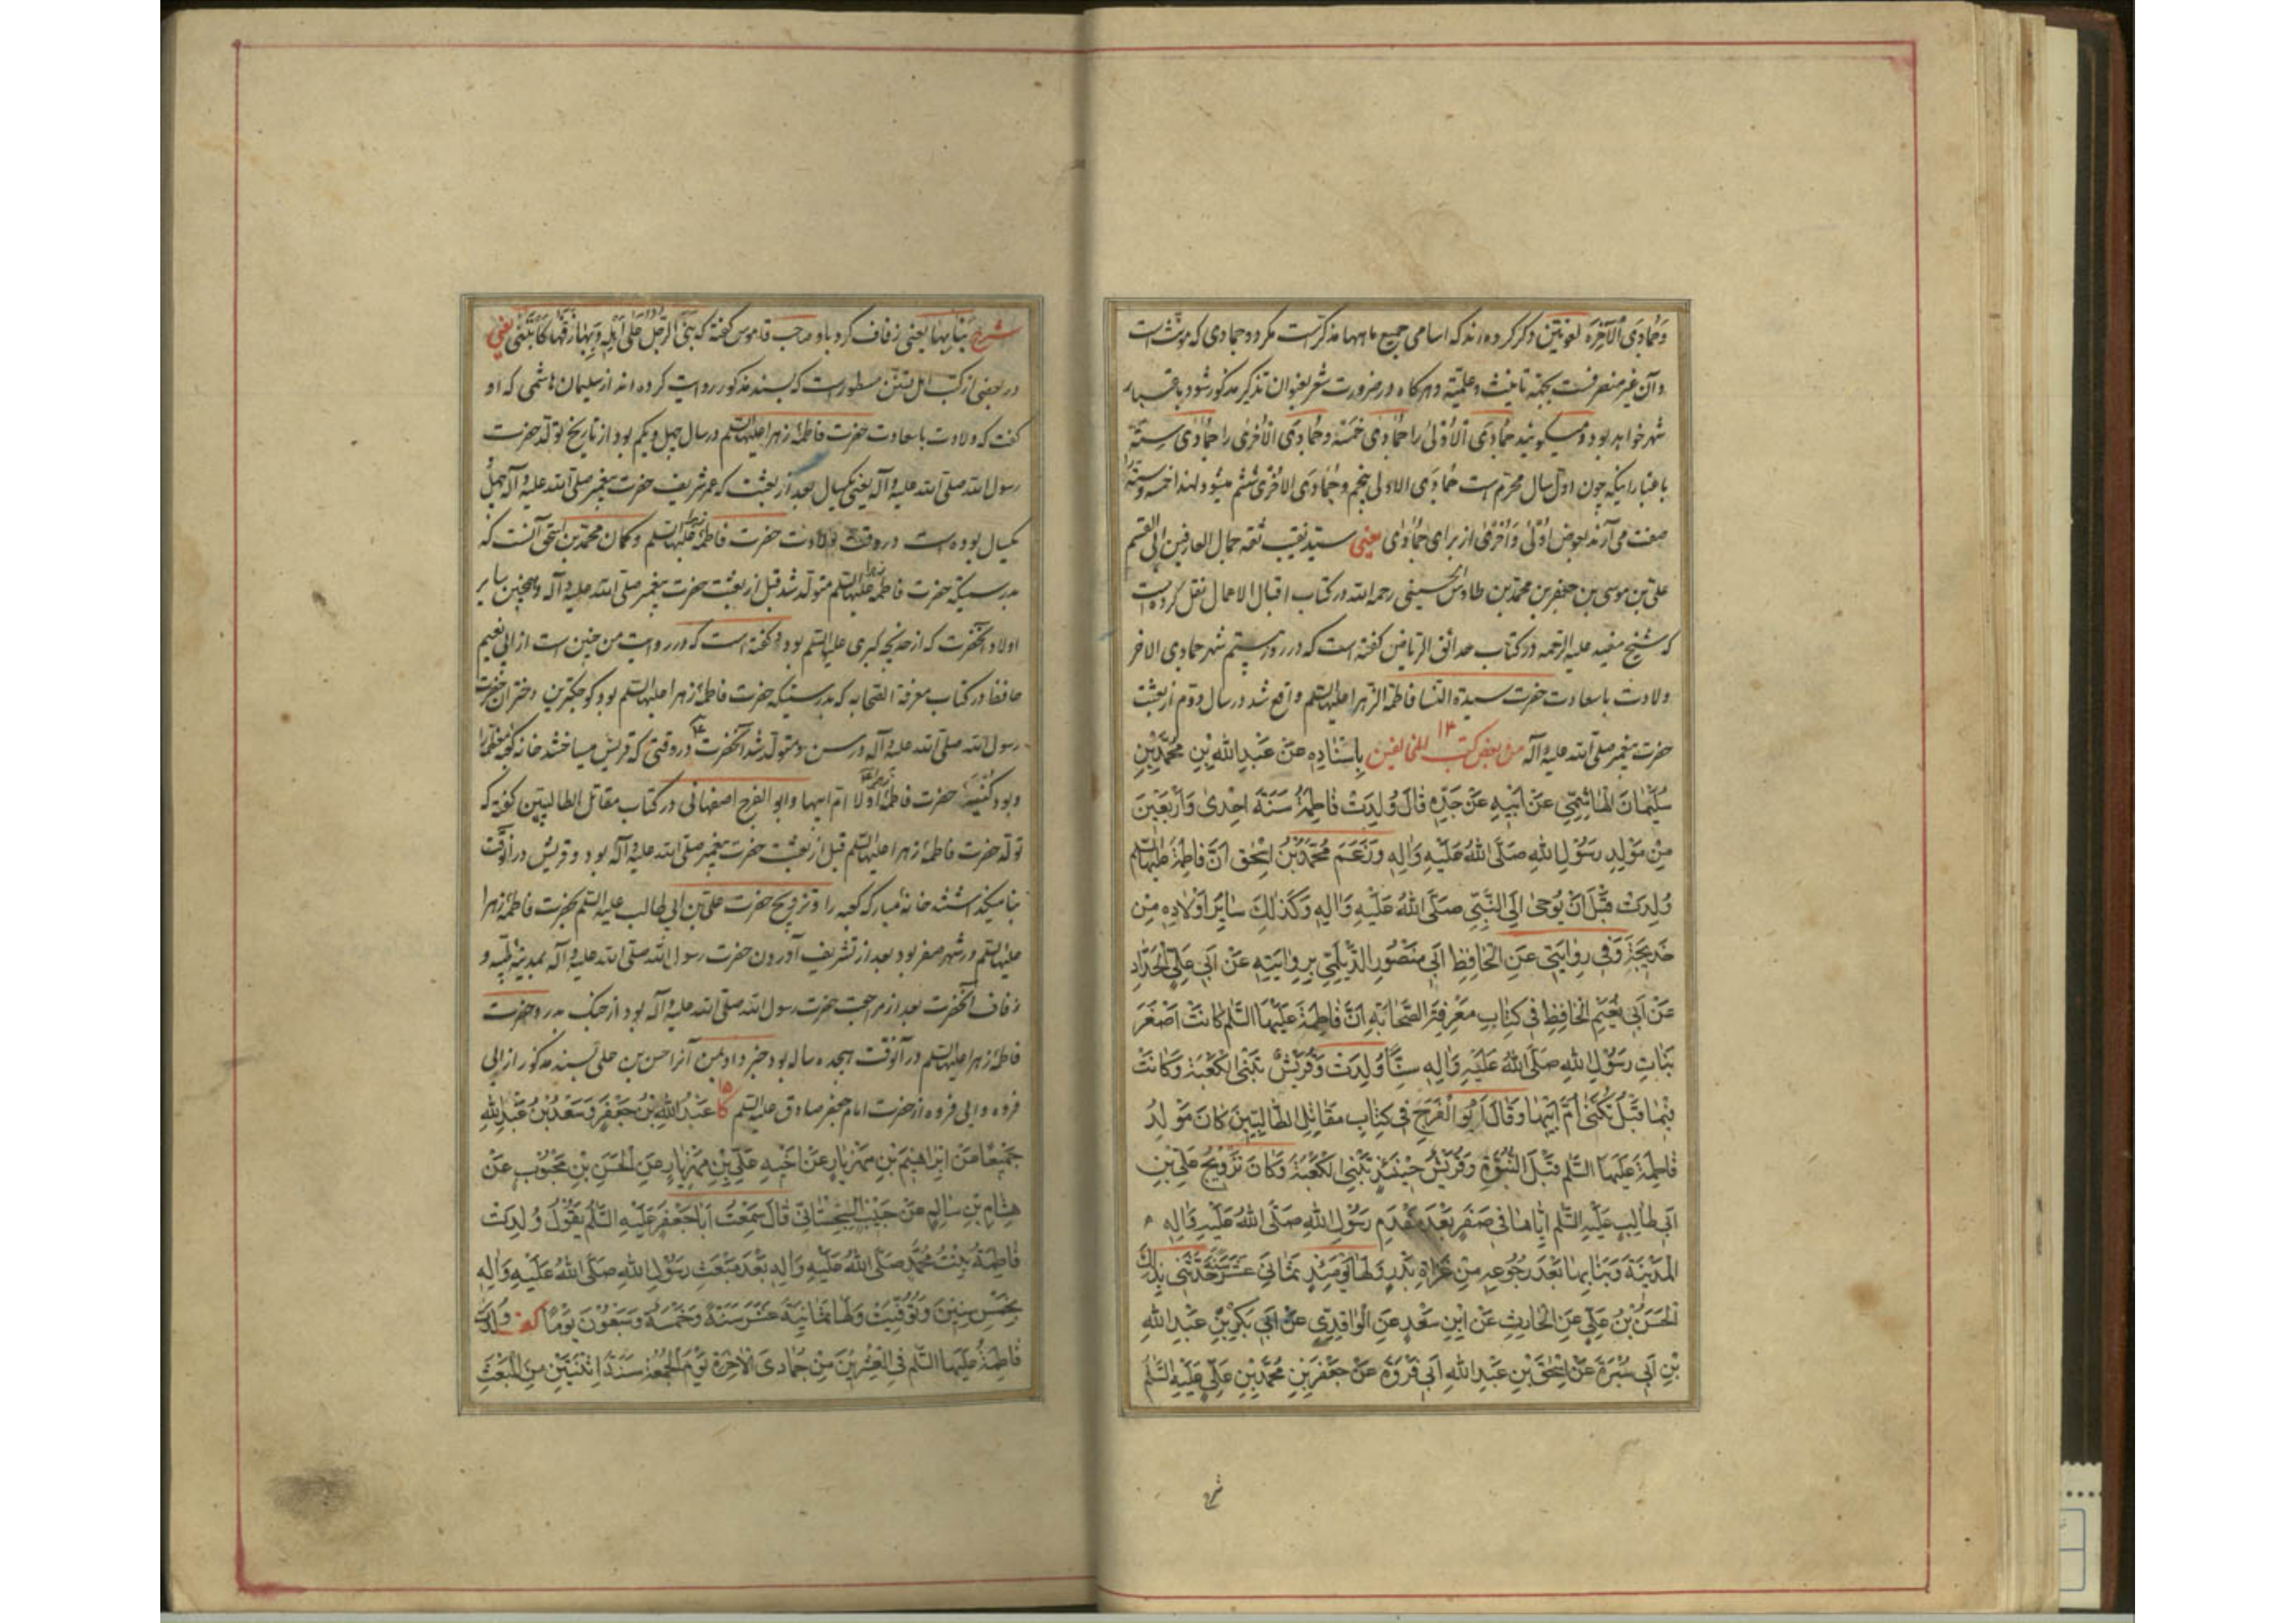 وَجُمادَی الْآخِرَه لغویّین ذکر کرده‌اند که اسامی جمیع ماهها مذکّر است مگر دو جمادی که مونّث است
و آن غیر منصرفست بجهة تانیث و علمیّة و هرگاه در ضرورت شعر بعنوان تذکیر مذکور شود باعتبار
شهر خواهد بود و میگویند جُمادَی الْاُوْلیٰ را جُمادَی خَمْسَة و جُمادَی الْاُخْریٰ را جُمادَی سِتَّة
باعتبار اینکه چون اوّل سال محرّم است جُمادَی الاولی پنجم و جُمادَی الاُخْریٰ ششم میشود لهذا خمسه و ستّة را
صفت می‌آرند بعوض اُوْلیٰ وَاُخْریٰ از برای جُمادیٰ یعنی سیّد نقیب ثقه جمال العارفین ابی القسم
علی بن موسی بن جعفر بن محمّد بن طاوس الحسینی رحمه الله در کتاب اقبال الاعمال نقل کرده است
که شیخ مفید علیه الرّحمه در کتاب حدائق الریاض گفته است که در روز بیستم شهر جمادی الاخر
ولادت با سعادت حضرت سیدة النّسا فاطمة الزّهرا علیها السّلم واقع شد در سال دوّم از بعثت
حضرت پیغمبر صلّی الله علیه و آله ۱۴ من بعض کتب المخالفین بِاِسْنَادِهِ عَنْ عَبْدِ اللهِ بْنِ مُحَمَّدِ بْنِ
سُلَیْمانَ الْهاشِمِیِّ عَنْ اَبِیهِ عَنْ جَدِّهِ قَالَ وُلِدَتْ فَاطِمَةُ سَنَةَ اِحْدیٰ وَاَرْبَعِینَ
مِنْ مَوْلِدِ رَسُوْلِ اللهِ صَلَّی اللهُ عَلَیْهِ وَاٰلِهِ وَزَعَمَ مُحَمَّدُ بْنُ اِسْحٰق اَنَّ فَاطِمَةَ علیها السّلم
وُلِدَتْ قَبْلَ اَنْ یُوْحیٰ اِلَی النَّبِیِّ صَلَّی اللهُ عَلَیْهِ وَاٰلِهِ وَکَذٰلِكَ سَایِرُ اَوْلَادِهِ مِنْ
خَدِیجَةَ وَفِی رِوٰایَتِی عَنِ الْحَافِظِ اَبِی مَنْصُورِ الدَّیْلَمِیِّ بِرِوٰایَتِهِ عَنْ اَبِی عَلِیِّ الْحَدّادِ
عَنْ اَبِی نُعَیْمِ الْحَافِظِ فِی کِتٰابِ مَعْرِفَةِ الصَّحٰابَةِ اَنَّ فَاطِمَةَ عَلَیْهَا السَّلم کَانَتْ اَصْغَرَ
بَنَاتِ رَسُوْلِ اللهِ صَلَّی اللهُ عَلَیْهِ وَاٰلِهِ سِنًّا وُلِدَتْ وَقُرَیْشٌ تَبْنِی الْکَعْبَةَ وَکَانَتْ
فِیْمَا قَبْلُ تُکَنّیٰ اُمَّ اَبِیْهَا وَقَالَ اَبُو الْفَرَجِ فِی کِتٰابِ مَقٰاتِلِ الطّٰالِبِیِّینَ کَانَ مَوْلِدُ
فَاطِمَةَ عَلَیْهَا السَّلم قَبْلَ النُّبُوَّةِ وَقُرَیْشٌ حِیْنَئِذٍ تَبْنِی الْکَعْبَةَ وَکَانَ تَزْوِیْجُ عَلِیِّ بْنِ
اَبِی طَالِبٍ عَلَیْهِ السَّلم اِیَّاهَا فِی صَفَرٍ بَعْدَ مَقْدَمِ رَسُوْلِ اللهِ صَلَّی اللهُ عَلَیْهِ وَاٰلِهِ
الْمَدِیْنَةَ وَبَنٰابِهَا بَعْدَ رُجُوعِهِ مِنْ غَزَاةِ بَدْرٍ وَلَهَا یَوْمَئِذٍ ثَمَانِیَ عَشَرَ سَنَةً حَدَّثَنِی بِذٰلِكَ
الْحَسَنُ بْنُ عَلِیٍّ عَنِ الْحَارِثِ عَنْ ابْنِ سَعْدٍ عَنِ الْوَاقِدِیِّ عَنْ اَبِی بَکْرِ بْنِ عَبْدِ اللهِ
بْنِ اَبِی سَبْرَةَ عَنْ اِسْحٰقَ بْنِ عَبْدِ اللهِ اَبِی فَرْوَةَ عَنْ جَعْفَرِ بْنِ مُحَمَّدِ بْنِ عَلِیٍّ عَلَیْهِ السَّلم
شرح
شرح بَنَابِهَا یعنی زفاف کرد باو صاحب قاموس گفته که بَنَی الرَّجُلُ عَلیٰ اَهْلِهِ وَبِهَا زَفَّهَا کَابْتَنیٰ یعنی
در بعضی از کتب اهل تسنّن مسطور است که بسند مذکور روایت کرده‌اند از سلیمان هاشمی که او
گفت که ولادت با سعادت حضرت فاطمهٔ زهرا علیها السّلم در سال چهل و یکم بود از تاریخ تولّد حضرت
رسول الله صلّی الله علیه و آله یعنی یکسال بعد از بعثت که عمر شریف حضرت پیغمبر صلّی الله علیه و آله چهل و
یکسال بوده است در وقت ولادت حضرت فاطمهٔ زهرا علیها السّلم و گمان محمّد بن اسحٰق آنست که
بدرستیکه حضرت فاطمه زهرا علیها السّلم متولّد شد قبل از بعثت حضرت پیغمبر صلّی الله علیه و آله و همچنین سایر
اولاد آنحضرت که از خدیجه کبری علیها السّلم بود و گفته است که در روایت من چنین است از ابی نعیم
حافظ در کتاب معرفة الصّحابه که بدرستیکه حضرت فاطمهٔ زهرا علیها السّلم بود کوچکترین دختران حضرت
رسول الله صلّی الله علیه و آله در سن و متولّد شد آنحضرت در وقتی که قریش میساختند خانه کعبه معظّمه را
و بود کُنیَت حضرت فاطمهٔ زهرا اولا امّ ابیها و ابو الفرج اصفهانی در کتاب مقاتل الطالبیّین گفته که
تولّد حضرت فاطمهٔ زهرا علیها السّلم قبل از بعثت حضرت پیغمبر صلّی الله علیه و آله بود و قریش در آنوقت
بنا میگذاشتند خانهٔ مبارکه کعبه را و تزویج حضرت علی بن ابی طالب علیه السّلم بحضرت فاطمهٔ زهرا
علیها السّلم در شهر صفر بود بعد از تشریف آوردن حضرت رسول الله صلّی الله علیه و آله بمدینهٔ طیّبه و
زفاف آنحضرت بعد از مراجعت حضرت رسول الله صلّی الله علیه و آله بود از جنگ بدر و حضرت
فاطمهٔ زهرا علیها السّلم در آنوقت هجده ساله بود خبر داد بمن آنرا حسن بن علی بسند مذکور از ابی
فروه و ابی فروه از حضرت امام جعفر صادق علیه السّلم ۱۵ کا عَبْدُ اللهِ بْنُ جَعْفَرٍ وَسَعْدُ بْنُ عَبْدِ اللهِ
جَمِیْعًا عَنْ اِبْرَاهِیْمَ بْنِ مَهْزِیَارٍ عَنْ اَخِیهِ عَلِیِّ بْنِ مَهْزِیَارٍ عَنِ الْحَسَنِ بْنِ مَحْبُوْبٍ عَنْ
هِشَامِ بْنِ سَالِمٍ عَنْ حَبِیْبِ السِّجِسْتَانِیِّ قَالَ سَمِعْتُ اَبَا جَعْفَرٍ عَلَیْهِ السَّلم یَقُوْلُ وُلِدَتْ
فَاطِمَةُ بِنْتُ مُحَمَّدٍ صَلَّی اللهُ عَلَیْهِ وَاٰلِهِ بَعْدَ مَبْعَثِ رَسُوْلِ اللهِ صَلَّی اللهُ عَلَیْهِ وَاٰلِهِ
بِخَمْسِ سِنِیْنَ وَتُوُفِّیَتْ وَلَهَا ثَمَانِیَةَ عَشَرَ سَنَةً وَخَمْسَةٌ وَسَبْعُوْنَ یَوْمًا کف وُلِدَتْ
فَاطِمَةُ عَلَیْهَا السَّلم فِی الْعِشْرِیْنَ مِنْ جُمَادَی الْاٰخِرَةِ یَوْمَ الْجُمُعَةِ سَنَةَ اثْنَتَیْنِ مِنَ الْمَبْعَثِ